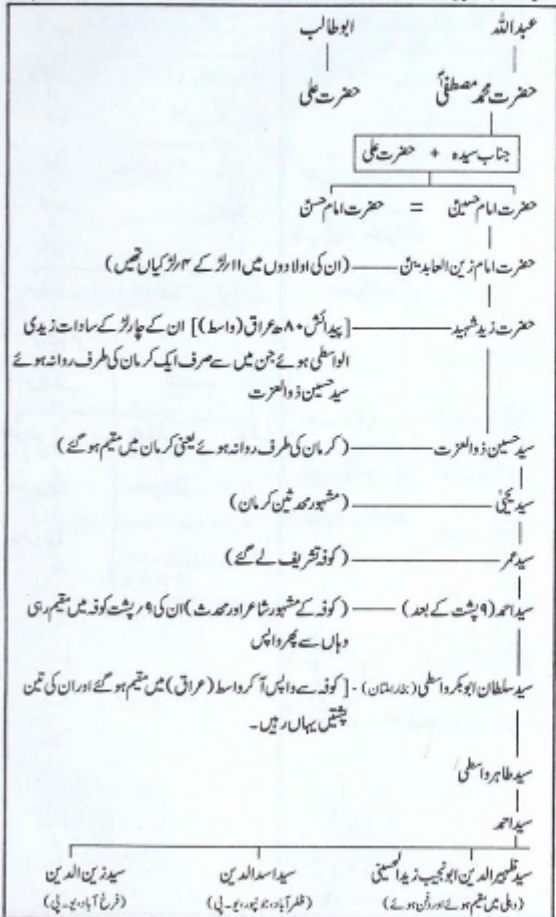 عبداللہ ابوطالب
حضرت محمد مصطفیٰؐ حضرت علی
جناب سیدہ + حضرت علی
حضرت امام حسین = حضرت امام حسن
حضرت امام زین العابدین (ان کی اولادوں میں ۱۱ لڑکے ۴ لڑکیاں تھیں)
حضرت زید شہید [پیدائش ۸۰ھ عراق (واسط)] ان کے چار لڑکے سادات زیدی
الواسطی ہوئے جن میں سے صرف ایک کرمان کی طرف روانہ ہوئے
سید حسین ذوالعزت
سید حسین ذوالعزت (کرمان کی طرف روانہ ہوئے یعنی کرمان میں مقیم ہو گئے)
سید یحییٰ (مشہور محدثین کرمان)
سید عمر (کوفہ تشریف لے گئے)
سید احمد (۹ پشت کے بعد) (کوفہ کے مشہور شاعر اور محدث) ان کی ۹ پشت کوفہ میں مقیم رہی
وہاں سے پھر واپس
سید سلطان ابوبکر واسطی - [کوفہ سے واپس آ کر واسط (عراق) میں مقیم ہو گئے اور ان کی تین
پشتیں یہاں رہیں۔
سید طاہر واسطی
سید احمد
سید ظہیر الدین ابونجیب زید الحسینی سید اسد الدین سید زین الدین
(دہلی میں مقیم ہوئے اور دفن ہوئے) (ظفر آباد، جونپور، یو۔پی) (فرخ آباد، یو۔پی)